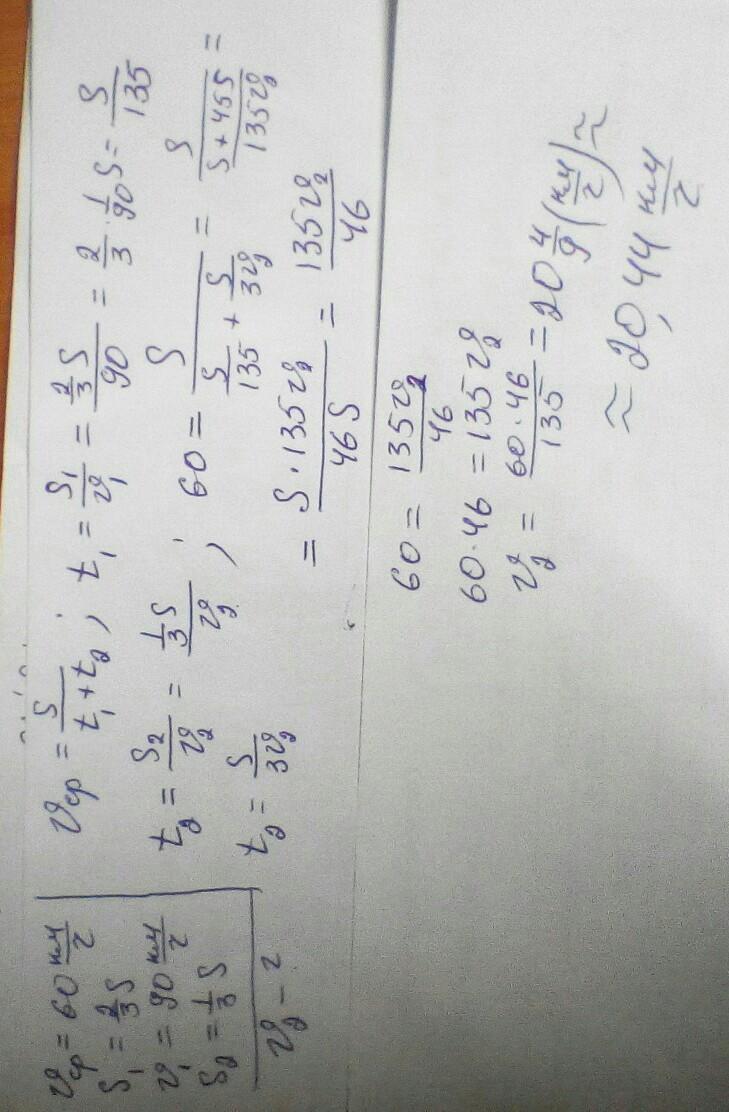 υср = 60 км/ч
S₁ = 2/3 S
υ₁ = 90 км/ч
S₂ = 1/3 S
υ₂ - ?
υср = S/(t₁+t₂) ; t₁ = S₁/υ₁ = (2/3 S)/90 = 2/3 · 1/90 S = S/135
t₂ = S₂/υ₂ = (1/3 S)/υ₂ ; 60 = S/(S/135 + S/3υ₂) = S/((S+45S)/135υ₂) =
t₂ = S/3υ₂
= S·135υ₂/46S = 135υ₂/46
60 = 135υ₂/46
60·46 = 135υ₂
υ₂ = 60·46/135 = 20 4/9 (км/ч) ≈
≈ 20,44 км/ч